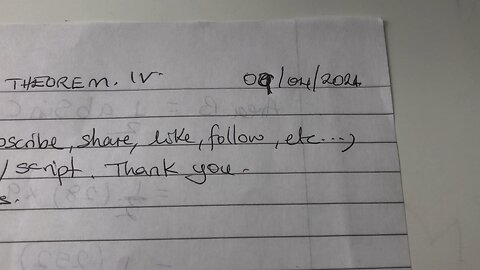 THEOREM. IV. 09/04/2024
bscribe, share, like, follow, etc...,
/script. Thank you.
s.